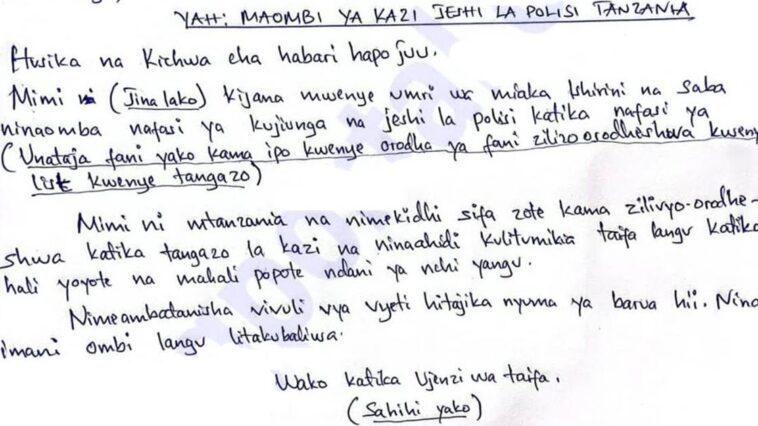 YAH: MAOMBI YA KAZI JESHI LA POLISI TANZANIA
Husika na Kichwa cha habari hapo juu.
Mimi ni (Jina lako) kijana mwenye umri wa miaka Ishirini na Saba
ninaomba nafasi ya kujiunga na jeshi la polisi katika nafasi ya
(Unataja fani yako kama ipo kwenye orodha ya fani zilizoorodheshwa kweny
list kwenye tangazo)
Mimi ni mtanzania na nimekidhi sifa zote kama zilivyo-orodhe-
shwa katika tangazo la kazi na ninaahidi kulitumikia taifa langu katika
hali yoyote na mahali popote ndani ya nchi yangu.
Nimeambatanisha vivuli vya vyeti hitajika nyuma ya barua hii. Nina
imani ombi langu litakubaliwa.
Wako katika Ujenzi wa taifa.
(Sahihi yako)